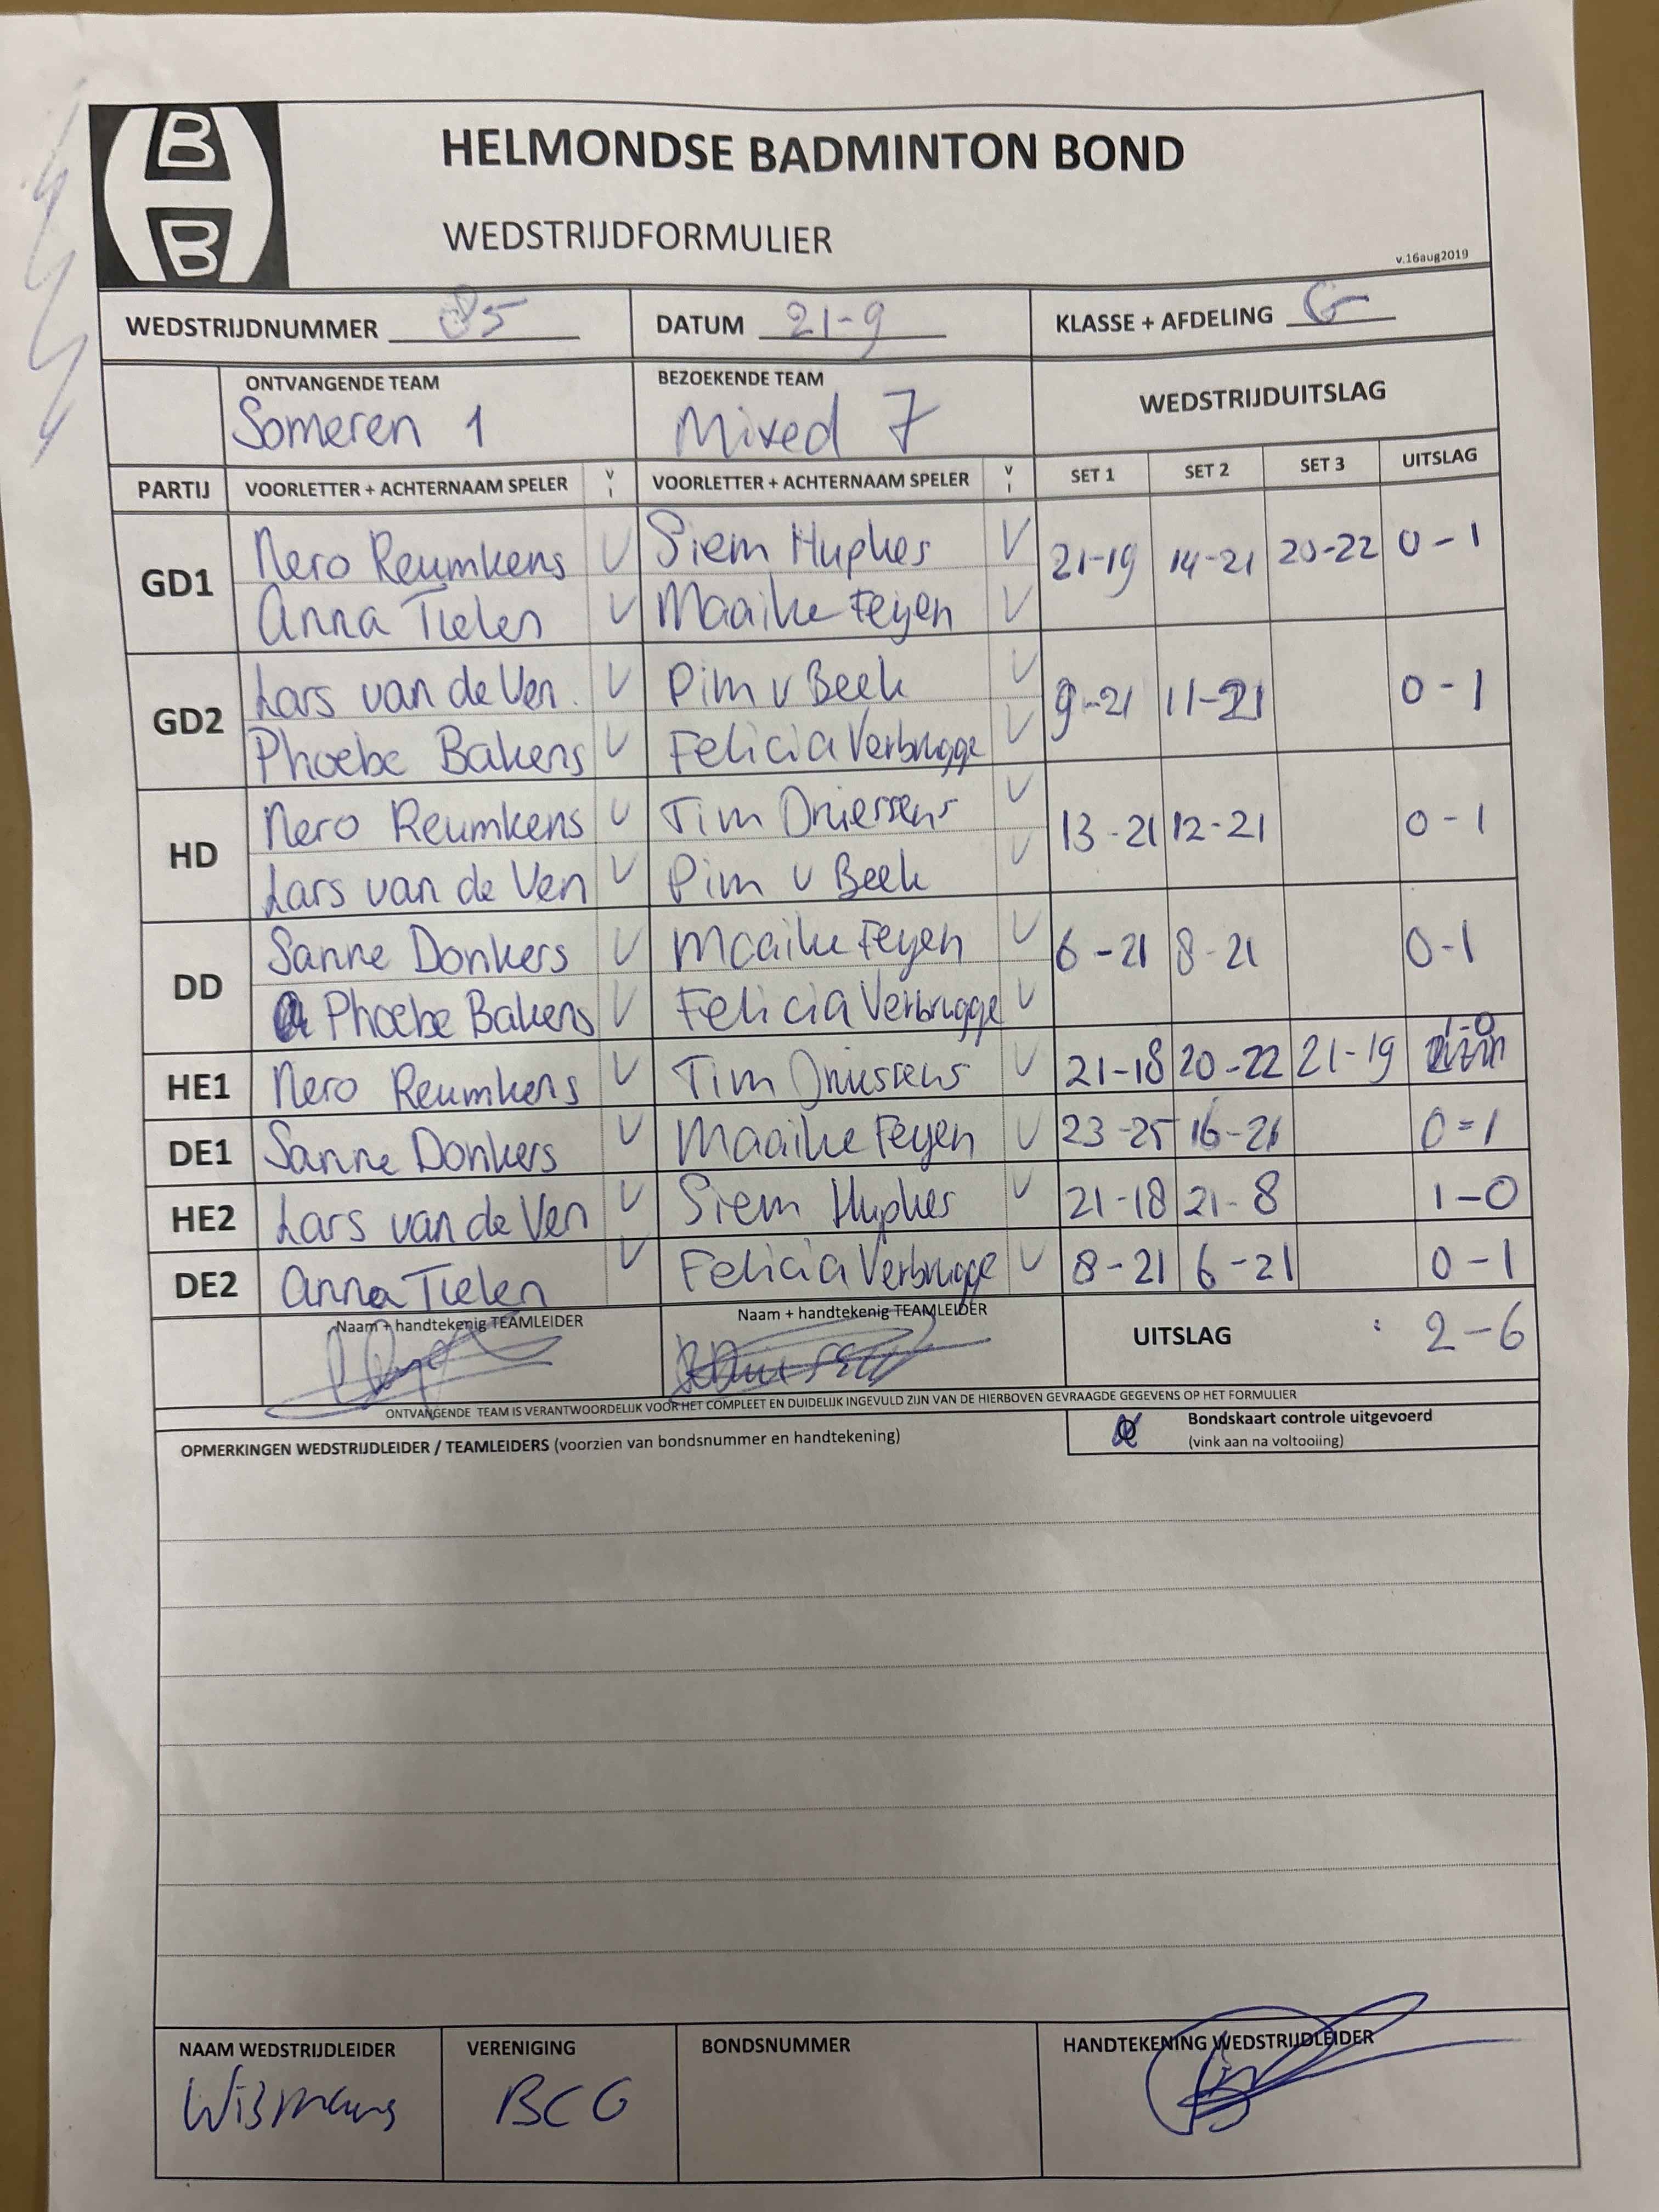 B
B
HELMONDSE BADMINTON BOND
WEDSTRIJDFORMULIER
v.16aug2019
WEDSTRIJDNUMMER 85 DATUM 21-9 KLASSE + AFDELING G
ONTVANGENDE TEAM BEZOEKENDE TEAM WEDSTRIJDUITSLAG
Someren 1 Mixed 7
PARTIJ VOORLETTER + ACHTERNAAM SPELER V I VOORLETTER + ACHTERNAAM SPELER V I SET 1 SET 2 SET 3 UITSLAG
GD1 Nero Reumkens V Siem Hupkes V 21-19 14-21 20-22 0-1
Anna Tielen V Maaike Feyen V
GD2 Lars van de Ven. V Pim v Beek V 9-21 11-21 0-1
Phoebe Bakens V Felicia Verbrugge V
HD Nero Reumkens V Tim Driessens V 13-21 12-21 0-1
Lars van de Ven V Pim v Beek V
DD Sanne Donkers V Maaike Feyen V 6-21 8-21 0-1
Phoebe Bakens V Felicia Verbrugge V
HE1 Nero Reumkens V Tim Driessens V 21-18 20-22 21-19 1-0
DE1 Sanne Donkers V Maaike Feyen V 23-25 16-21 0=1
HE2 Lars van de Ven V Siem Hupkes V 21-18 21-8 1-0
DE2 Anna Tielen V Felicia Verbrugge V 8-21 6-21 0-1
Naam + handtekenig TEAMLEIDER Naam + handtekenig TEAMLEIDER UITSLAG : 2-6
ONTVANGENDE TEAM IS VERANTWOORDELIJK VOOR HET COMPLEET EN DUIDELIJK INGEVULD ZIJN VAN DE HIERBOVEN GEVRAAGDE GEGEVENS OP HET FORMULIER
OPMERKINGEN WEDSTRIJDLEIDER / TEAMLEIDERS (voorzien van bondsnummer en handtekening)
Bondskaart controle uitgevoerd
(vink aan na voltooiing)
NAAM WEDSTRIJDLEIDER VERENIGING BONDSNUMMER HANDTEKENING WEDSTRIJDLEIDER
Wismans BCG